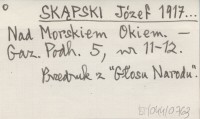 SKĄPSKI Józef 1917...
Nad Morskiem Okiem. —
Gaz. Podh. 5, nr 11-12.
Przedruk z "Głosu Narodu".